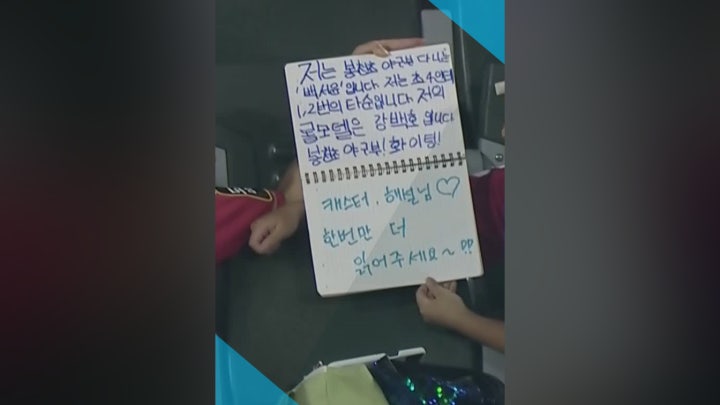 저는 봉천초 야구부 다니는
'백시웅'입니다. 저는 초4인데
1,2번의 타순입니다. 저의
롤모델은 강백호 입니다
봉천초 야구부! 화이팅!
캐스터, 해설님♡
한번만 더
읽어주세요~!!